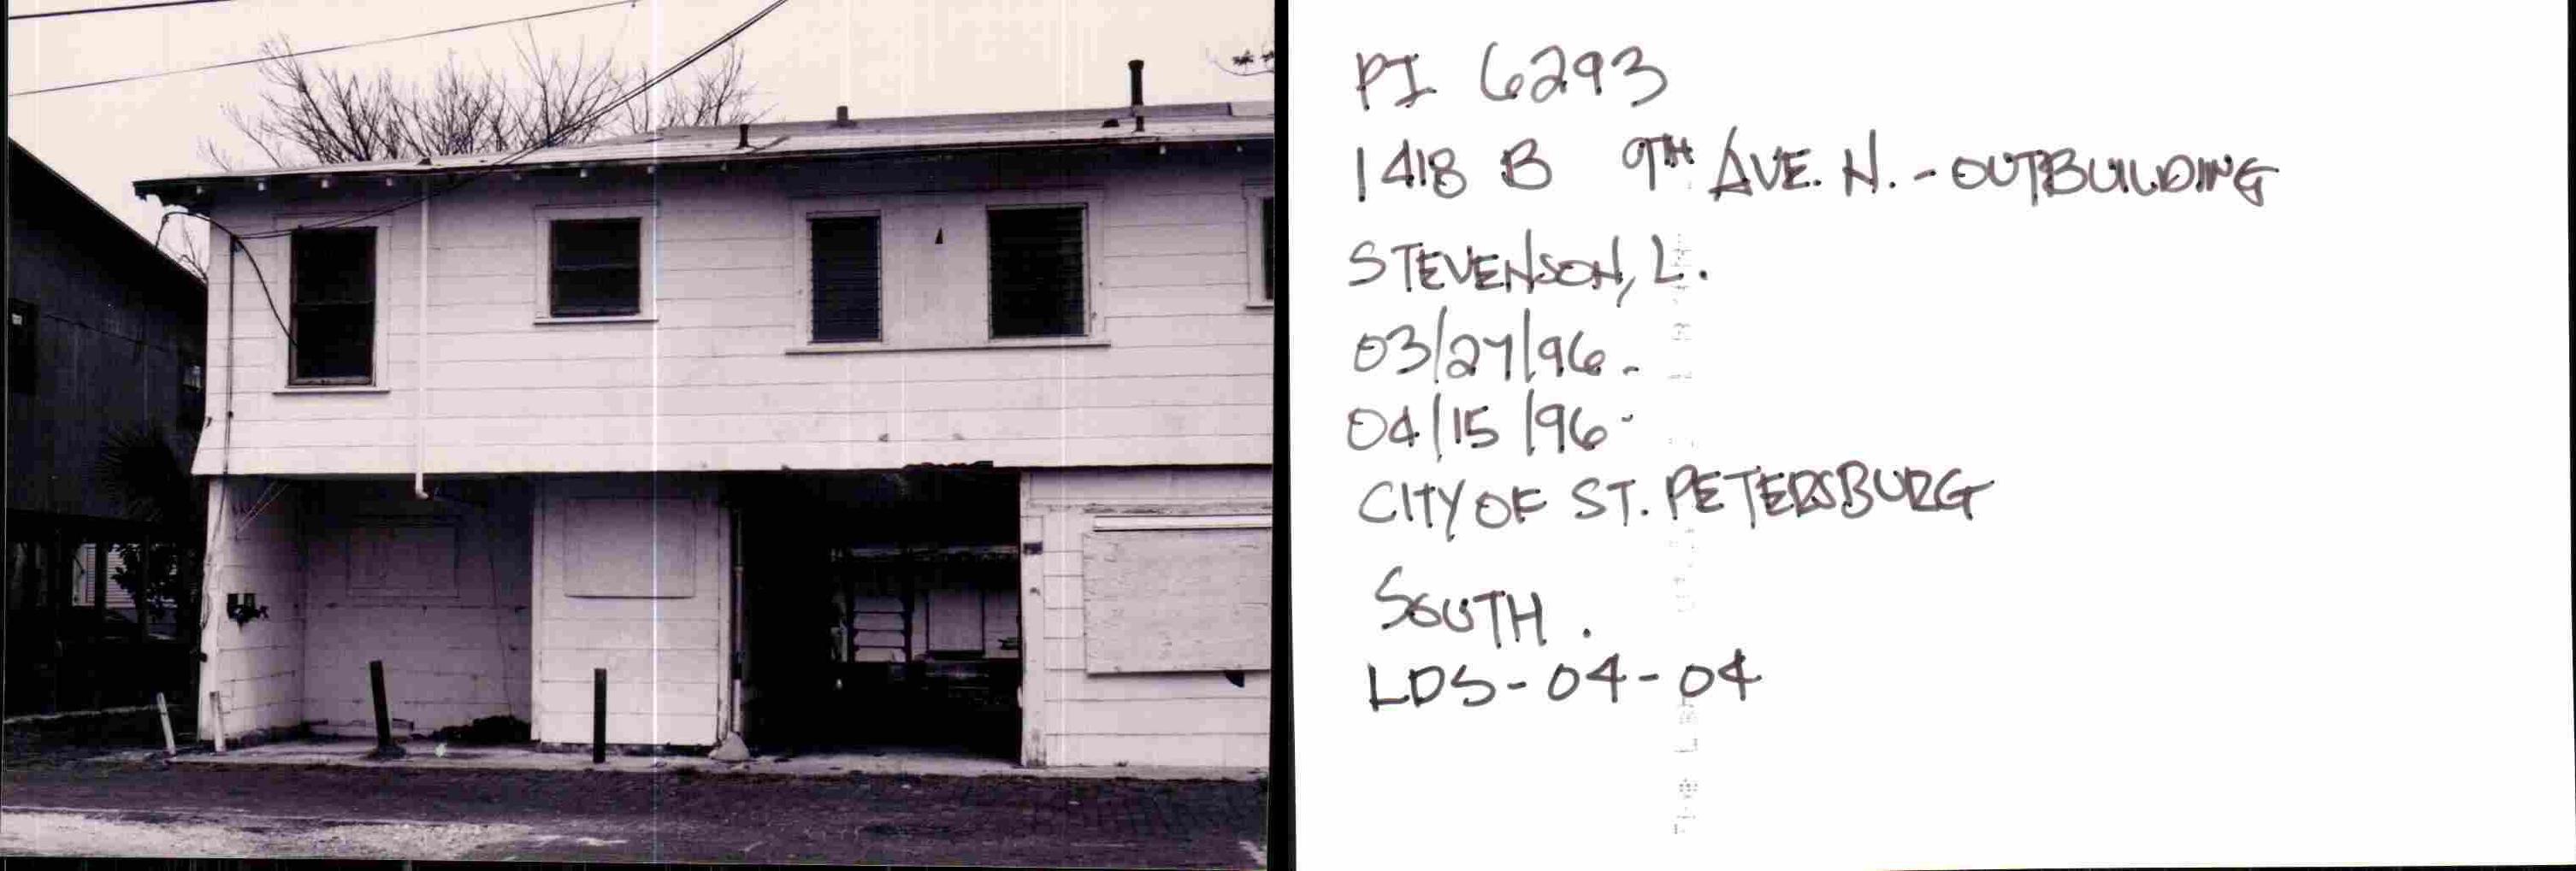 PI 6293
1418 B 9TH AVE. N. - OUTBUILDING
STEVENSON, L.
03/27/96.
04/15/96
CITY OF ST. PETERSBURG
SOUTH.
LDS-04-04